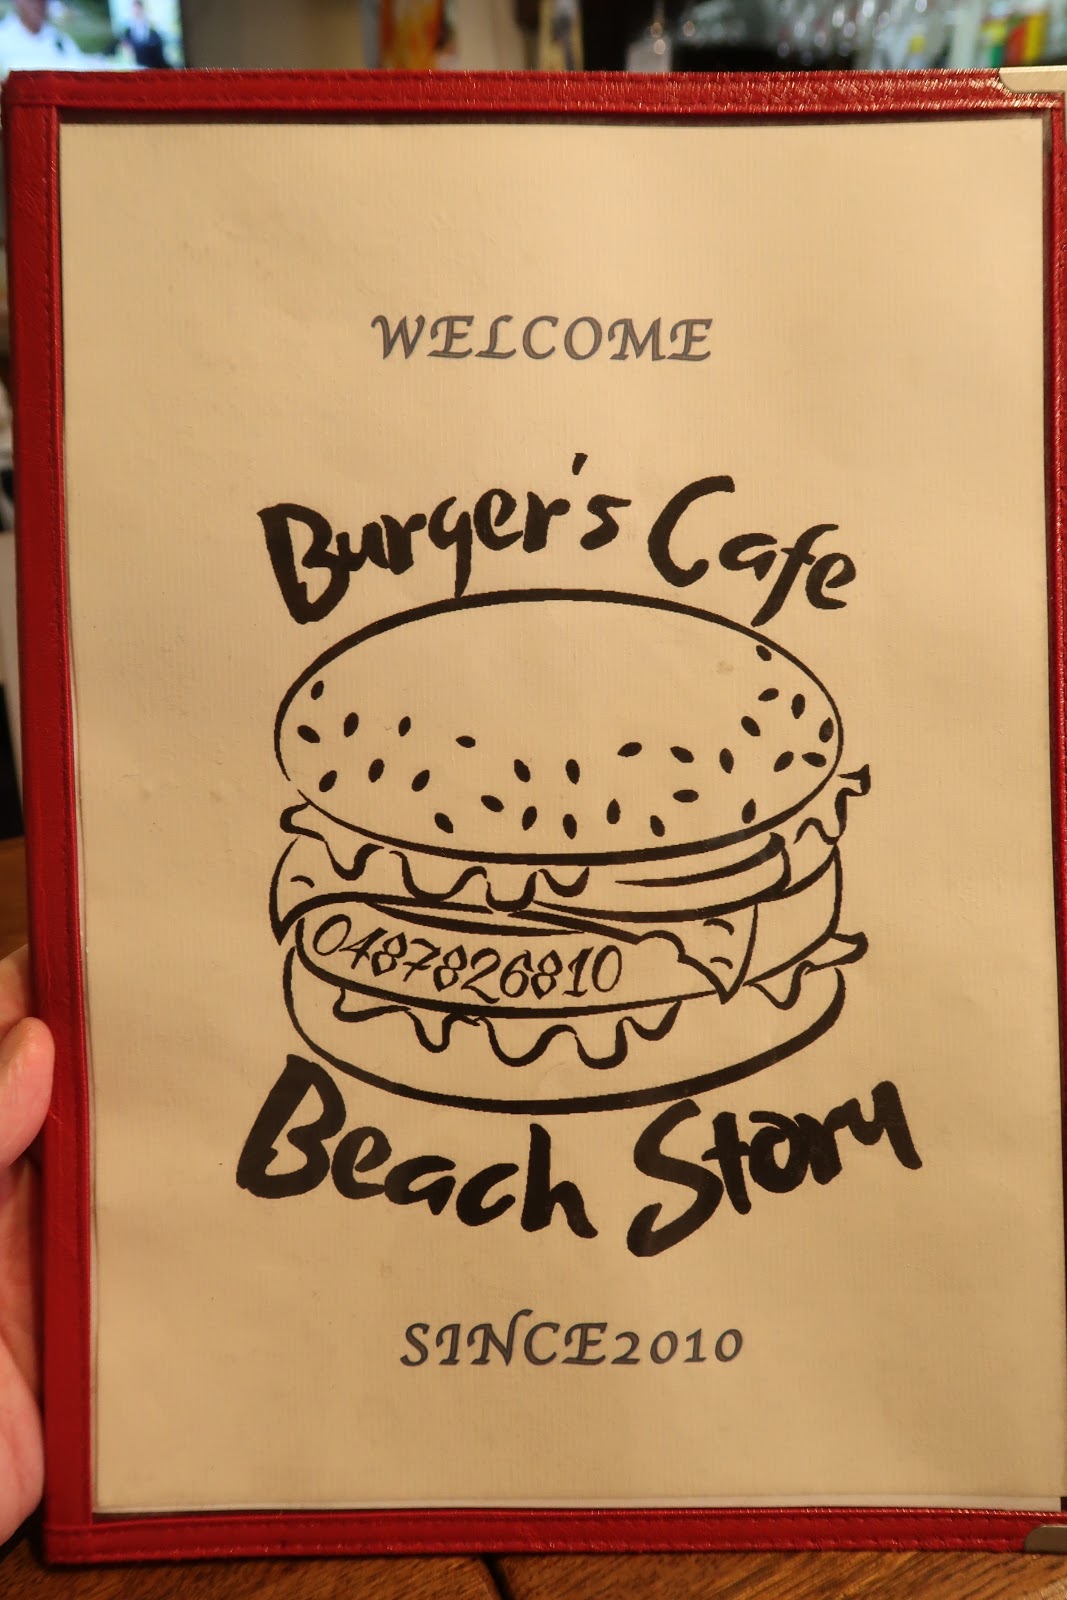 WELCOME
Burger's Cafe
0487826810
Beach Story
SINCE2010